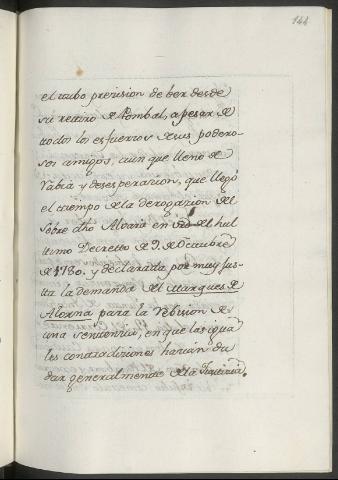 144
el tubo prevision de ber desde
su retiro de Pombal, a pesar de
todos los esfuerzos de sus podero-
sos amigos, aun que lleno de
Rabia y desesperacion, que llegó
el tiempo de la derogazion del
sobre dho Alvará en del hul
timo Decretto de 9. de Octubre
de 1780. y declarada por muy jus-
ta la demanda del Marques de
Alorna para la Rebision de
una sentencia, en que las igua
les contradiziones harian du
dar generalmente de la Justicia.